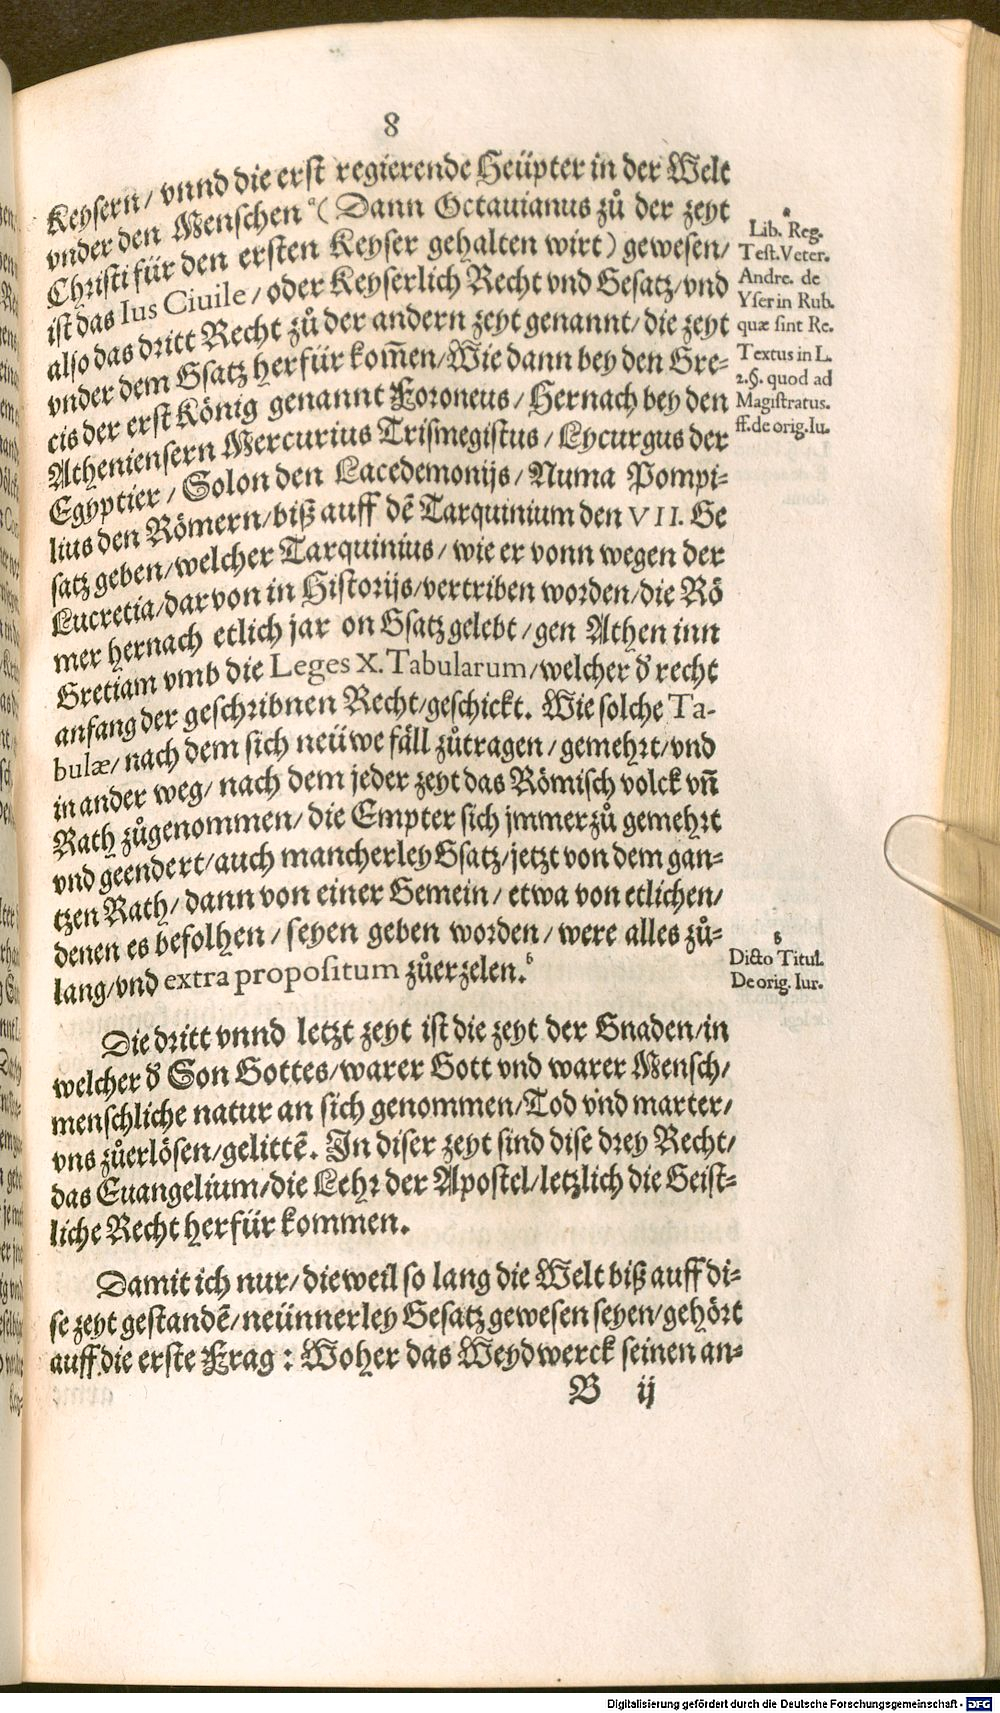 8
Keysern/ vnnd die erst regierende Heüpter in der Welt
vnder den Menschen a( Dann Octauianus zů der zeyt
Christi für den ersten Keyser gehalten wirt) gewesen/
ist das Ius Ciuile/ oder Keyserlich Recht vnd Gesatz/vnd
also das dritt Recht zů der andern zeyt genannt/ die zeyt
vnder dem Gsatz herfür kom̃en/Wie dann bey den Gre-
cis der erst König genannt Foroneus/ Hernach bey den
Atheniensern Mercurius Trismegistus/ Lycurgus der
Egyptier/ Solon den Lacedemonijs/ Numa Pompi-
lius den Römern/biß auff dē Tarquinium den VII. Ge
satz geben/welcher Tarquinius/ wie er vonn wegen der
Lucretia/darvon in Historijs/vertriben worden/die Rö
mer hernach etlich jar on Gsatz gelebt/gen Athen inn
Gretiam vmb die Leges X. Tabularum/welcher d̕ recht
anfang der geschribnen Recht/geschickt. Wie solche Ta-
bulæ/ nach dem sich neüwe fäll zůtragen/ gemehrt/vnd
in ander weg/ nach dem jeder zeyt das Römisch volck vn̄
Rath zůgenommen/ die Empter sich jmmerzů gemehrt
vnd geendert/auch mancherley Gsatz/jetzt von dem gan-
tzen Rath/ dann von einer Gemein/ etwa von etlichen/
denen es befolhen/ seyen geben worden/ were alles zů-
lang/vnd extra propositum zůerzelen.b
Die dritt vnnd letzt zeyt ist die zeyt der Gnaden/in
welcher d̕ Son Gottes/warer Gott vnd warer Mensch/
menschliche natur an sich genommen/Tod vnd marter/
vns zůerlösen/gelittē. In diser zeyt sind dise drey Recht/
das Euangelium/die Lehr der Apostel/letzlich die Geist-
liche Recht herfür kommen.
Damit ich nur/ dieweil so lang die Welt biß auff di-
se zeyt gestandē/neünnerley Gesatz gewesen seyen/gehört
auff die erste Frag : Woher das Weydwerck seinen an-
B ij
a
Lib. Reg.
Test. Veter.
Andre. de
Yser in Rub.
quæ sint Re.
Textus in L.
2.§. quod ad
Magistratus.
ff. de orig. Iu.
b
Dicto Titul.
De orig. Iur.
Digitalisierung gefördert durch die Deutsche Forschungsgemeinschaft - DFG